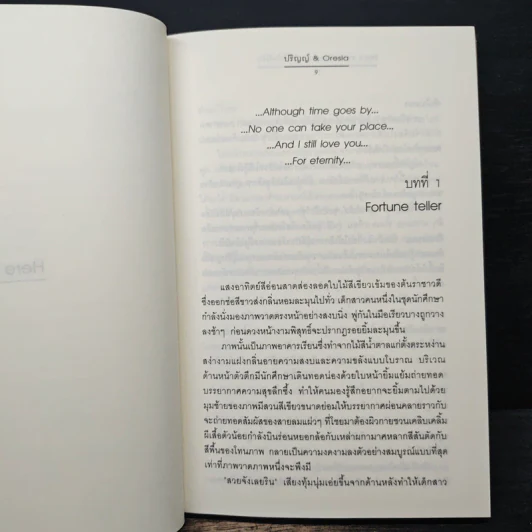 ปริญญ์ & Oresia
9
...Although time goes by...
...No one can take your place...
...And I still love you...
...For eternity...
บทที่ 1
Fortune teller
แสงอาทิตย์สีอ่อนสาดส่องลอดใบไม้สีเขียวเข้มของต้นราชาวดี
ซึ่งออกช่อสีขาวส่งกลิ่นหอมละมุนไปทั่ว เด็กสาวคนหนึ่งในชุดนักศึกษา
กำลังนั่งมองภาพวาดตรงหน้าอย่างสงบนิ่ง พู่กันในมือเรียวบางถูกวาง
ลงช้าๆ ก่อนดวงหน้างามพิสุทธิ์จะปรากฏรอยยิ้มละมุนขึ้น
ภาพนั้นเป็นภาพอาคารเรียนซึ่งทำจากไม้สีน้ำตาลแก่ตั้งตระหง่าน
สง่างามแฝงกลิ่นอายความสงบและความขลังแบบโบราณ บริเวณ
ด้านหน้าตัวตึกมีนักศึกษาเดินทอดน่องด้วยใบหน้ายิ้มแย้มถ่ายทอด
บรรยากาศความสุขลึกซึ้ง ทำให้คนมองรู้สึกอยากจะยิ้มตามไปด้วย
มุมซ้ายของภาพมีสวนสีเขียวขนาดย่อมให้บรรยากาศผ่อนคลายราวกับ
จะถ่ายทอดสัมผัสของสายลมแผ่วๆ ที่โชยมาต้องผิวกายชวนเคลิบเคลิ้ม
ผีเสื้อตัวน้อยกำลังบินร่อนหยอกล้อกับเหล่าผกามาศหลากสีสันตัดกับ
สีพื้นของโทนภาพ กลายเป็นความงดงามลงตัวอย่างสมบูรณ์แบบที่สุด
เท่าที่ภาพวาดภาพหนึ่งจะพึงมี
"สวยจังเลยริน" เสียงทุ้มนุ่มเอ่ยขึ้นจากด้านหลังทำให้เด็กสาว
Here